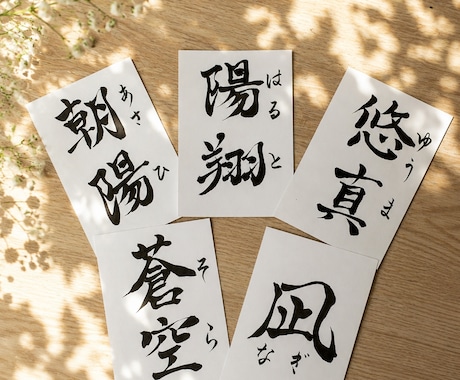 朝陽
あさひ
陽翔
はると
悠真
ゆうま
蒼空
そら
凪
なぎ